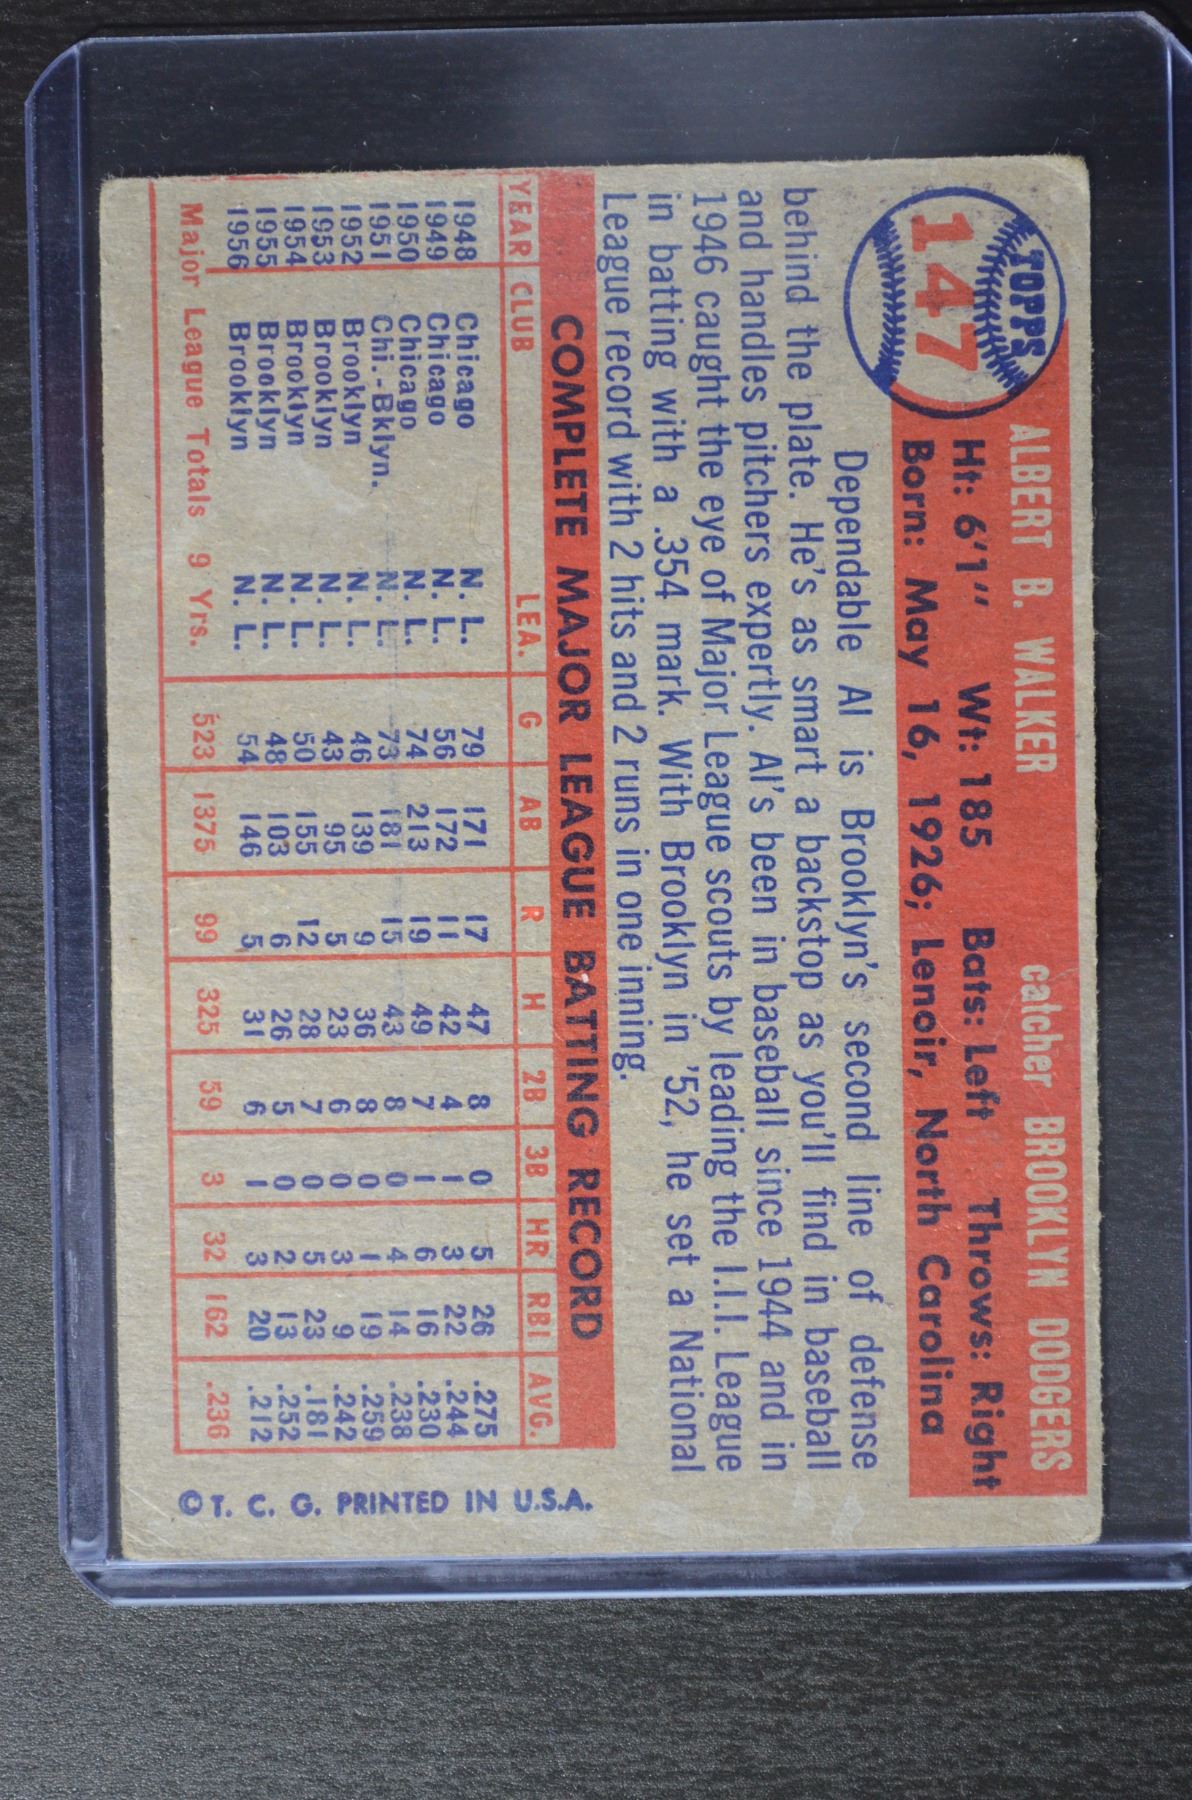 TOPPS
147
ALBERT B. WALKER catcher BROOKLYN DODGERS
Ht: 6'1" Wt: 185 Bats: Left Throws: Right
Born: May 16, 1926; Lenoir, North Carolina
Dependable Al is Brooklyn's second line of defense
behind the plate. He's as smart a backstop as you'll find in baseball
and handles pitchers expertly. Al's been in baseball since 1944 and in
1946 caught the eye of Major League scouts by leading the I.I.I. League
in batting with a .354 mark. With Brooklyn in '52, he set a National
League record with 2 hits and 2 runs in one inning.
COMPLETE MAJOR LEAGUE BATTING RECORD
YEAR CLUB LEA. G AB R H 2B 3B HR RBI AVG.
1948 Chicago N. L. 79 171 17 47 8 0 5 26 .275
1949 Chicago N. L. 56 172 11 42 4 1 3 22 .244
1950 Chicago N. L. 74 213 19 49 7 1 6 16 .230
1951 Chi.-Bklyn. N. L. 73 181 15 43 8 0 4 14 .238
1952 Brooklyn N. L. 46 139 9 36 8 0 1 19 .259
1953 Brooklyn N. L. 43 95 5 23 6 0 3 9 .242
1954 Brooklyn N. L. 50 155 12 28 7 0 5 23 .181
1955 Brooklyn N. L. 48 103 6 26 5 0 2 13 .252
1956 Brooklyn N. L. 54 146 5 31 6 1 3 20 .212
Major League Totals 9 Yrs. 523 1375 99 325 59 3 32 162 .236
© T. C. G. PRINTED IN U.S.A.